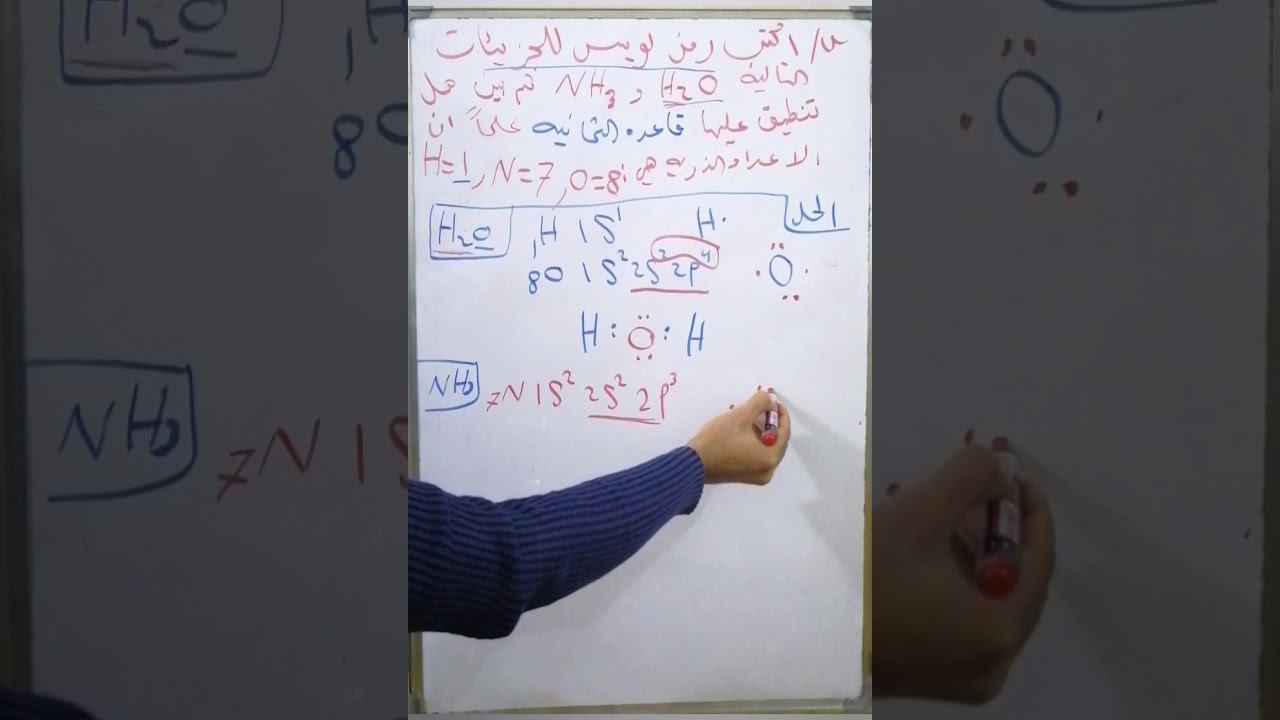 س/ اكتب رمز لويس للجزيئات
التالية H₂O و NH₃ ثم بين هل
تنطبق عليها قاعدة الثمانية علماً ان
الاعداد الذرية هي O=8, N=7, H=1
الحل
H₂O ₁H 1S¹ H·
₈O 1S² 2S² 2P⁴ O
H : O : H
NH₃ ₇N 1S² 2S² 2P³